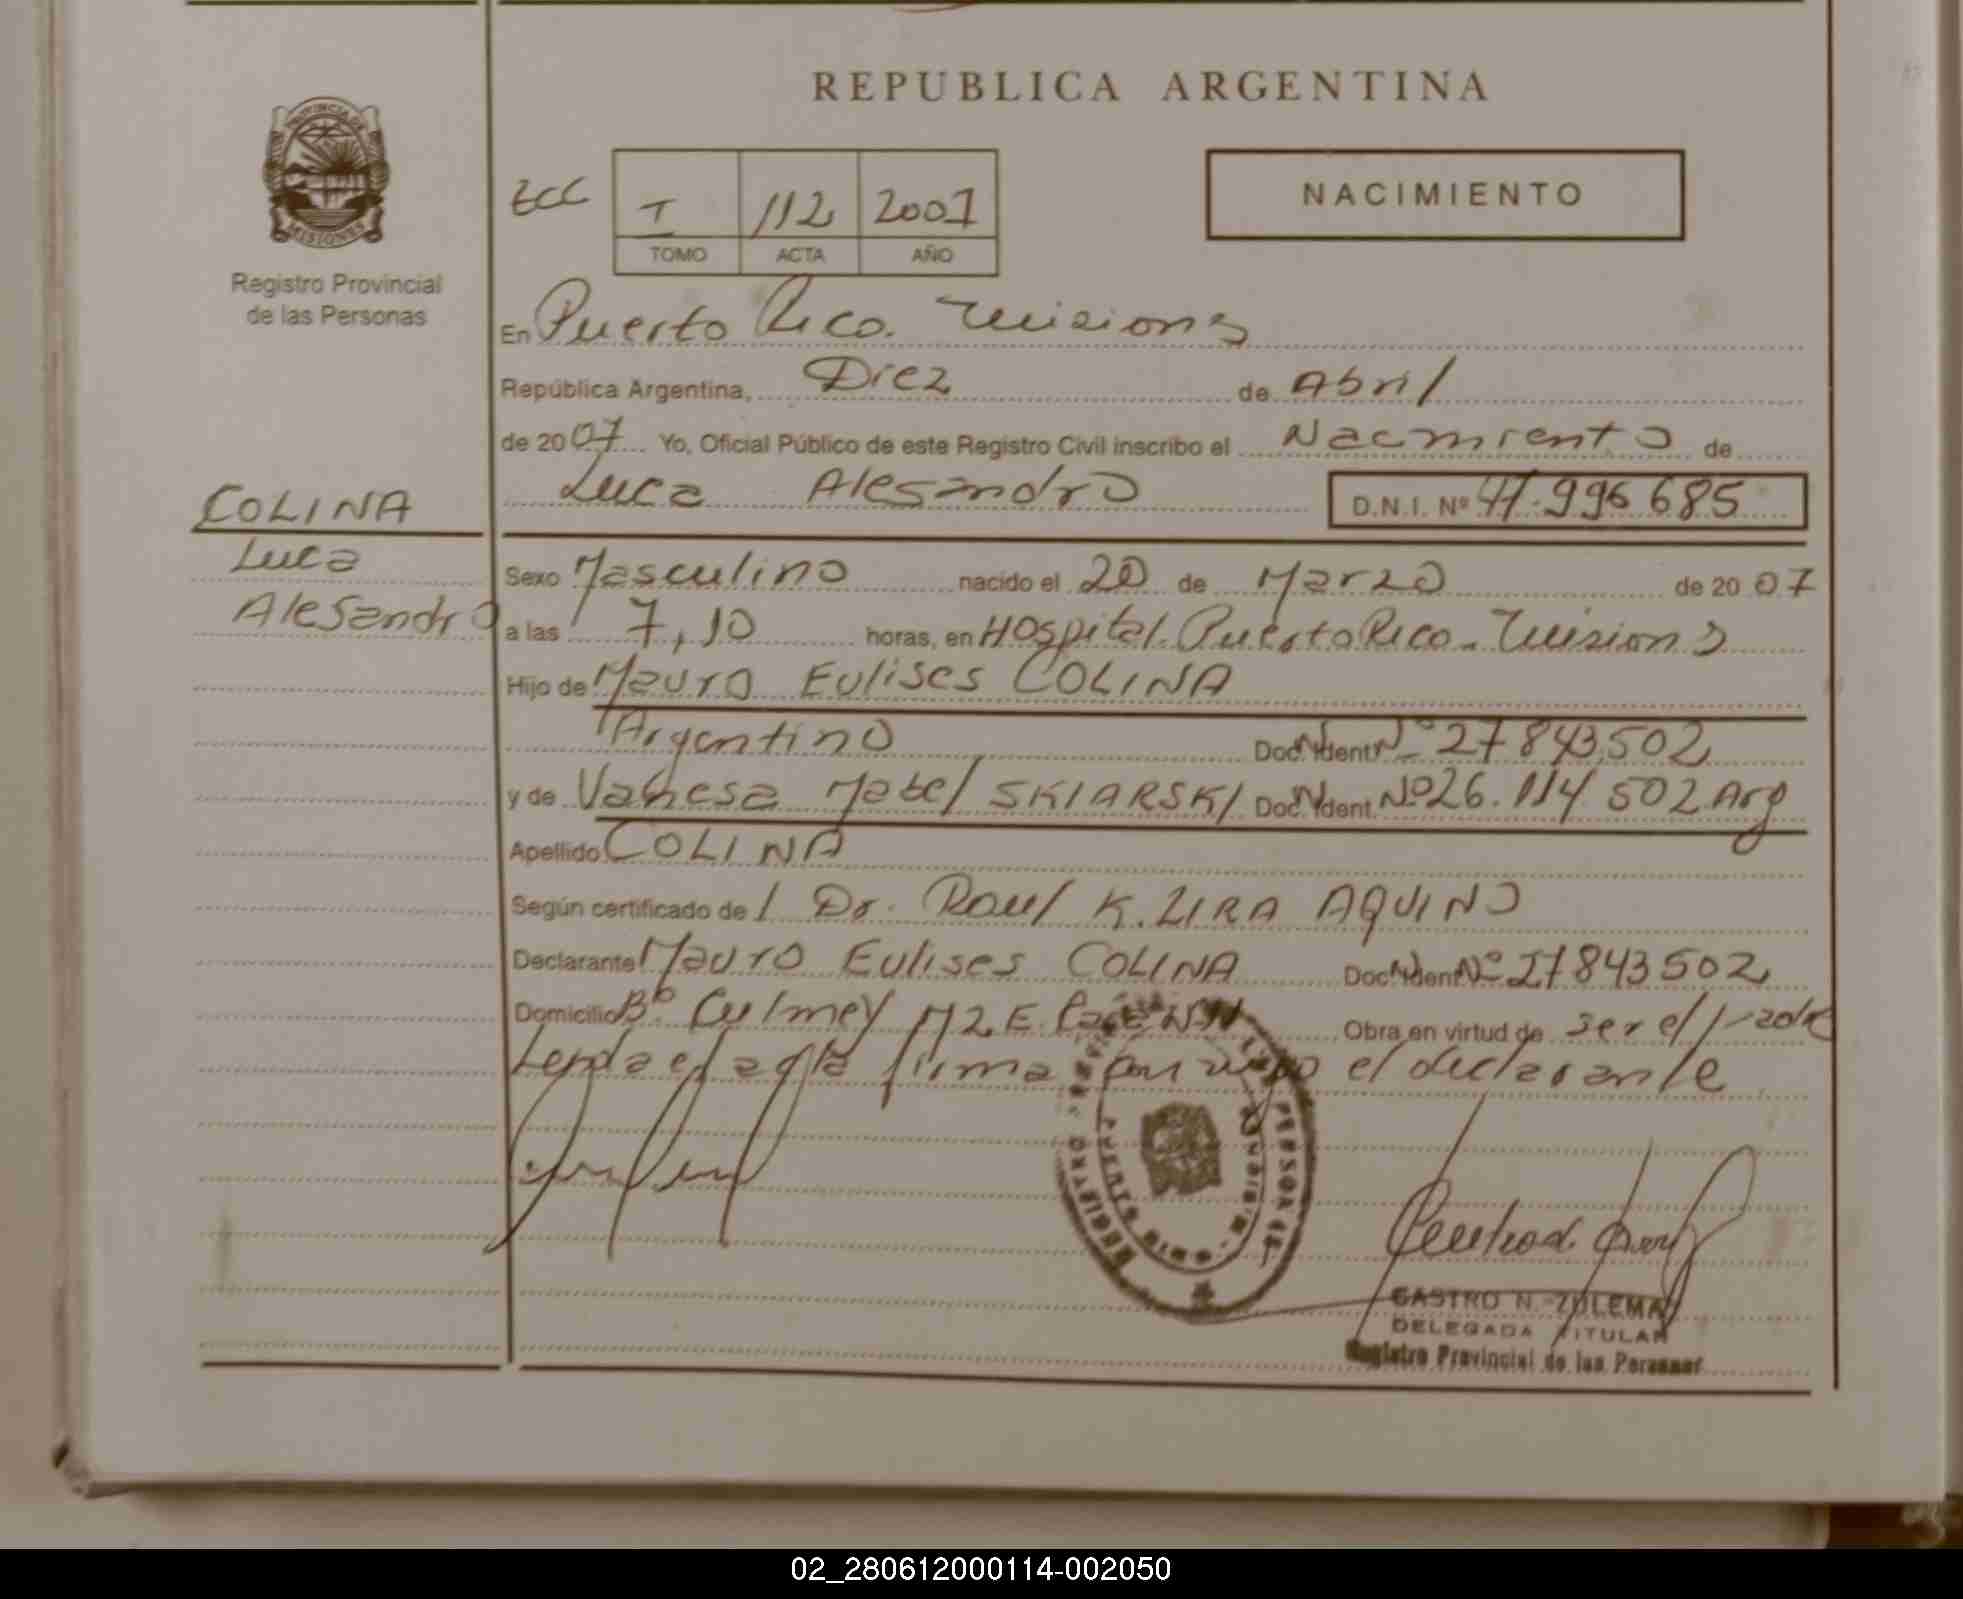 REPUBLICA ARGENTINA
PROVINCIA DE MISIONES
Registro Provincial
de las Personas
ECC I 112 2007
TOMO ACTA AÑO
NACIMIENTO
En Puerto Rico. Misiones
República Argentina, Diez de Abril
de 2007 Yo, Oficial Público de este Registro Civil inscribo el Nacimiento de
Luca Alesandro D.N.I. Nº 47.996685
COLINA
Luca
Alesandro
Sexo Masculino nacido el 20 de Marzo de 2007
a las 7,10 horas, en Hospital. Puerto Rico - Misiones
Hijo de Mauro Eulises COLINA
Argentino Doc. Ident. Nº 27843.502
y de Vanesa Mabel SKIARSKI Doc. Ident. Nº 26.114.502 Arg
Apellido COLINA
Según certificado del Dr. Raul K. LIRA AQUINO
Declarante Mauro Eulises COLINA Doc. Ident. Nº 27843502
Domicilio Bº Culmey MZ E Obra en virtud de ser el Padre
Leyda el acta firma el declarante
REGISTRO PERSONAS
CASTRO N. ZULEMA
DELEGADA TITULAR
Registro Provincial de las Personas
02_280612000114-002050